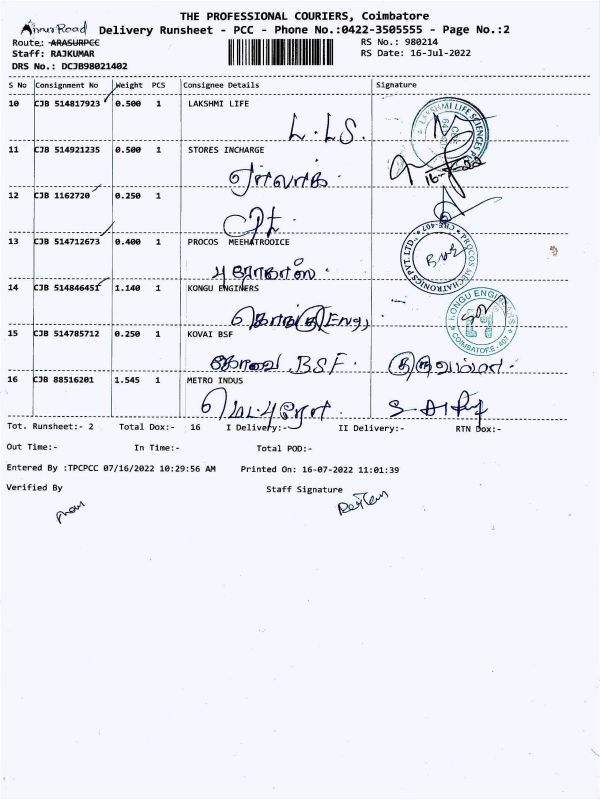 THE PROFESSIONAL COURIERS, Coimbatore
Annur Road Delivery Runsheet - PCC - Phone No.:0422-3505555 - Page No.:2
Route: ARASURPCC RS No.: 980214
Staff: RAJKUMAR RS Date: 16-Jul-2022
DRS No.: DCJB98021402
S No Consignment No Weight PCS Consignee Details Signature
10 CJB 514817923 0.500 1 LAKSHMI LIFE
L.L.S.
11 CJB 514921235 0.500 1 STORES INCHARGE
12 CJB 1162720 0.250 1
13 CJB 514712673 0.400 1 PROCOS MEEHATROOICE
14 CJB 514846451 1.140 1 KONGU ENGINERS
கொங்கு Engg
15 CJB 514785712 0.250 1 KOVAI BSF
கோவை BSF.
16 CJB 88516201 1.545 1 METRO INDUS
Tot. Runsheet:- 2 Total Dox:- 16 I Delivery:- II Delivery:- RTN Dox:-
Out Time:- In Time:- Total POD:-
Entered By :TPCPCC 07/16/2022 10:29:56 AM Printed On: 16-07-2022 11:01:39
Verified By Staff Signature